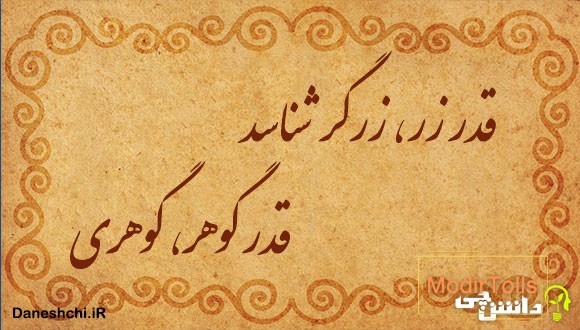 قدر زر، زرگر شناسد
قدر گوهر، گوهری
ModirTolls
دانش چی
Daneshchi.iR